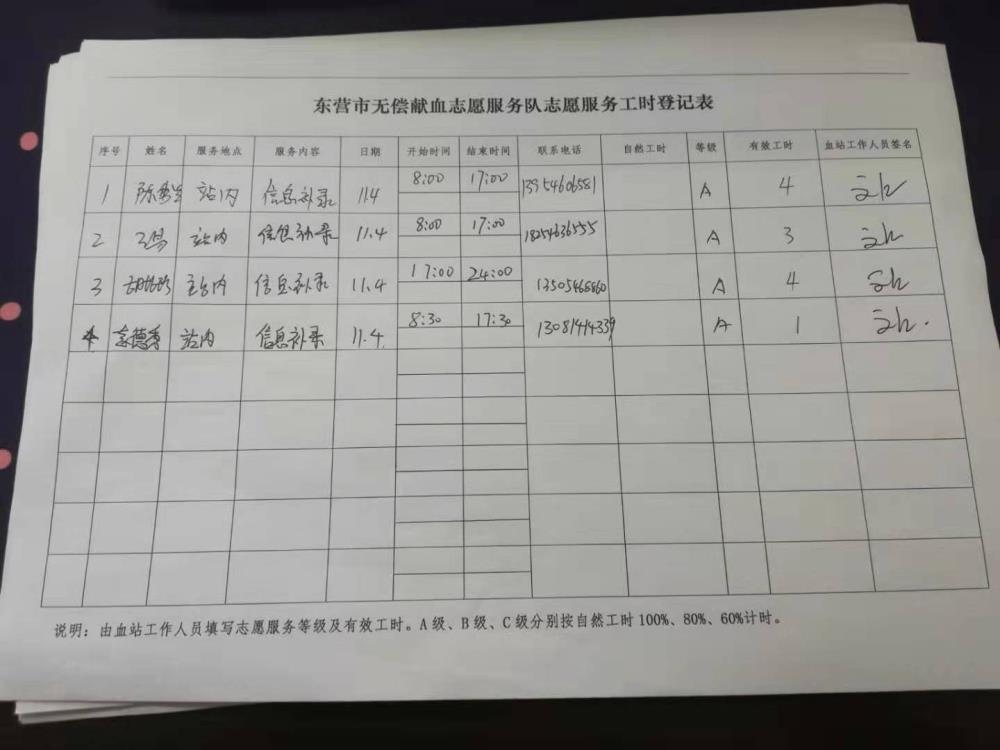 东营市无偿献血志愿服务队志愿服务工时登记表
序号 姓名 服务地点 服务内容 日期 开始时间 结束时间 联系电话 自然工时 等级 有效工时 血站工作人员签名
1 站内 信息补录 11.4 8:00 17:00 13954606581 A 4
2 站内 信息补录 11.4 8:00 17:00 18254636555 A 3
3 站内 信息补录 11.4 17:00 24:00 13505468860 A 4
站内 信息补录 11.4 8:30 17:30 13081414339 A 1
说明：由血站工作人员填写志愿服务等级及有效工时。A级、B级、C级分别按自然工时100%、80%、60%计时。